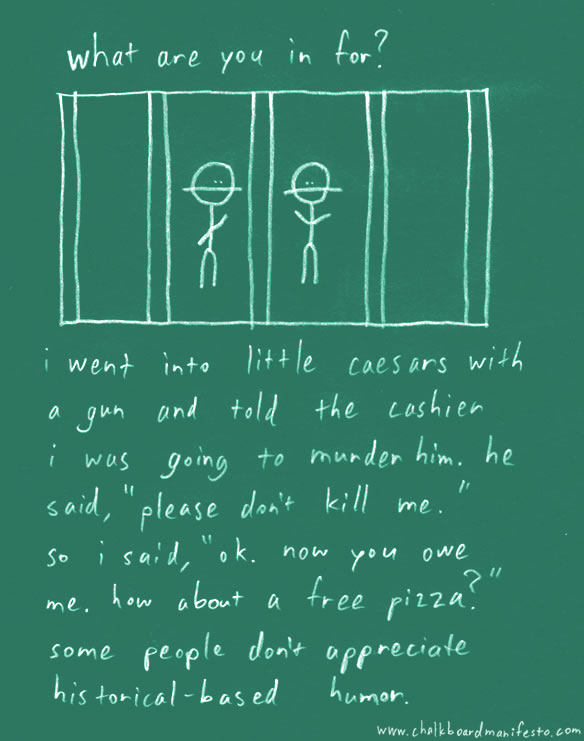 what are you in for?
i went into little caesars with
a gun and told the cashier
i was going to murder him. he
said, "please don't kill me."
so i said, "ok. now you owe
me. how about a free pizza?"
some people don't appreciate
historical-based humor.
www.chalkboardmanifesto.com